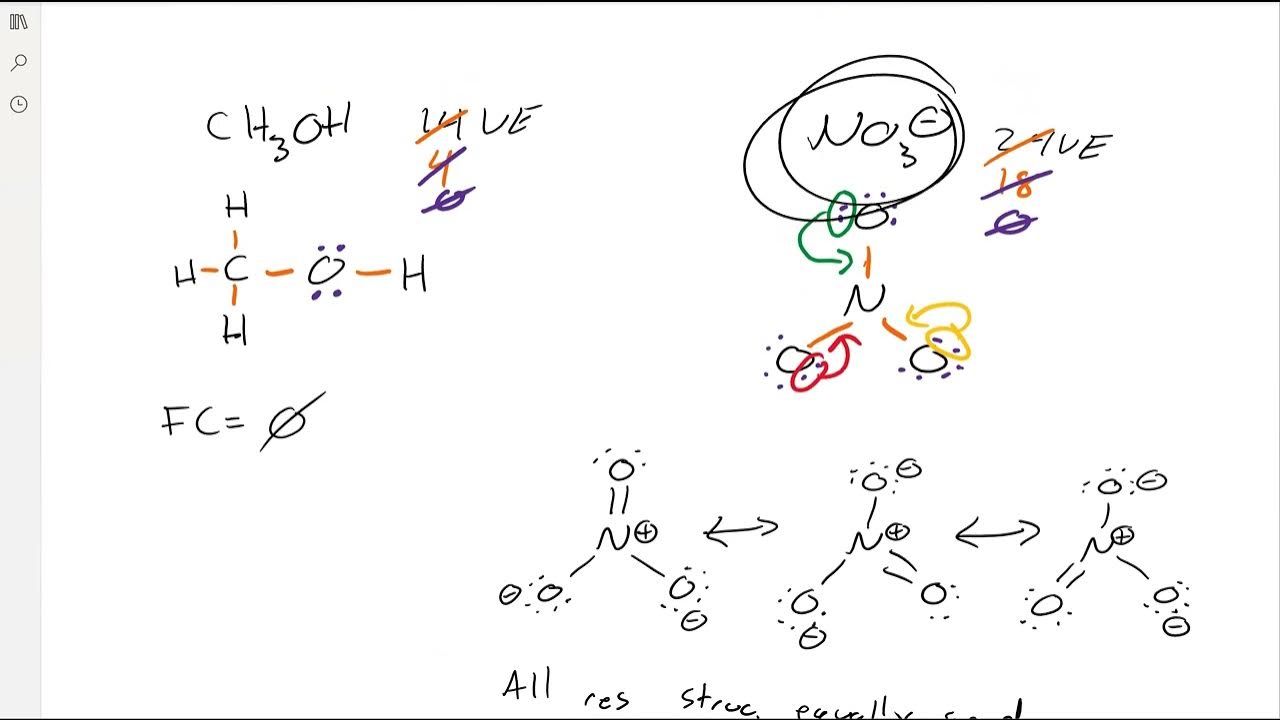 CH₃OH 14 VE
4
0
H
H-C-O-H
H
FC= ∅
NO₃⊖ 24 VE
18
0
O
N
O O
O
N⊕
⊖O O⊖
↔
O⊖
N⊕
O⊖ O
↔
O⊖
N⊕
O O⊖
All res struc. equally good